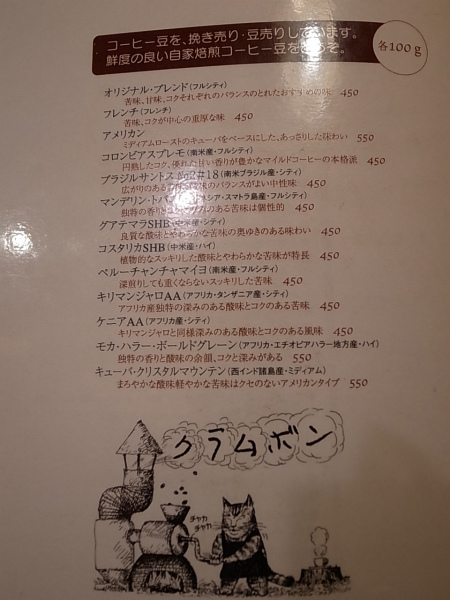 コーヒー豆を、挽き売り・豆売りしています。
鮮度の良い自家焙煎コーヒー豆をどうぞ。
各100g
オリジナル・ブレンド(フルシティ)
苦味、甘味、コクそれぞれのバランスのとれたおすすめの味 450
フレンチ(フレンチ)
苦味、コクが中心の重厚な味 450
アメリカン
ミディアムローストのキューバをベースにした、あっさりした味わい 550
コロンビアスプレモ(南米産・フルシティ)
円熟したコク、優れた甘い香りが豊かなマイルドコーヒーの本格派 450
ブラジルサントスNo2#18(南米ブラジル産・シティ)
広がりのある 味のバランスがよい中性味 450
マンデリン・トバ シア・スマトラ島産・フルシティ)
独特の香りと のある苦味は個性的 450
グアテマラSHB(中米産・シティ)
良質な酸味とやわらかな苦味の奥ゆきのある味わい 450
コスタリカSHB(中米産・ハイ)
植物的なスッキリした酸味とやわらかな苦味が特長 450
ペルーチャンチャマイヨ(南米産・フルシティ)
深煎りしても重くならないスッキリした苦味 450
キリマンジャロAA(アフリカ・タンザニア産・シティ)
アフリカ産独特の深みのある酸味とコクのある苦味 450
ケニアAA(アフリカ産・シティ)
キリマンジャロと同様深みのある酸味とコクのある風味 450
モカ・ハラー・ボールドグレーン(アフリカ・エチオピアハラー地方産・ハイ)
独特の香りと酸味の余韻、コクと深みがある 550
キューバ・クリスタルマウンテン(西インド諸島産・ミディアム)
まろやかな酸味軽やかな苦味はクセのないアメリカンタイプ 550
クラムボン
チャカ
チャカ